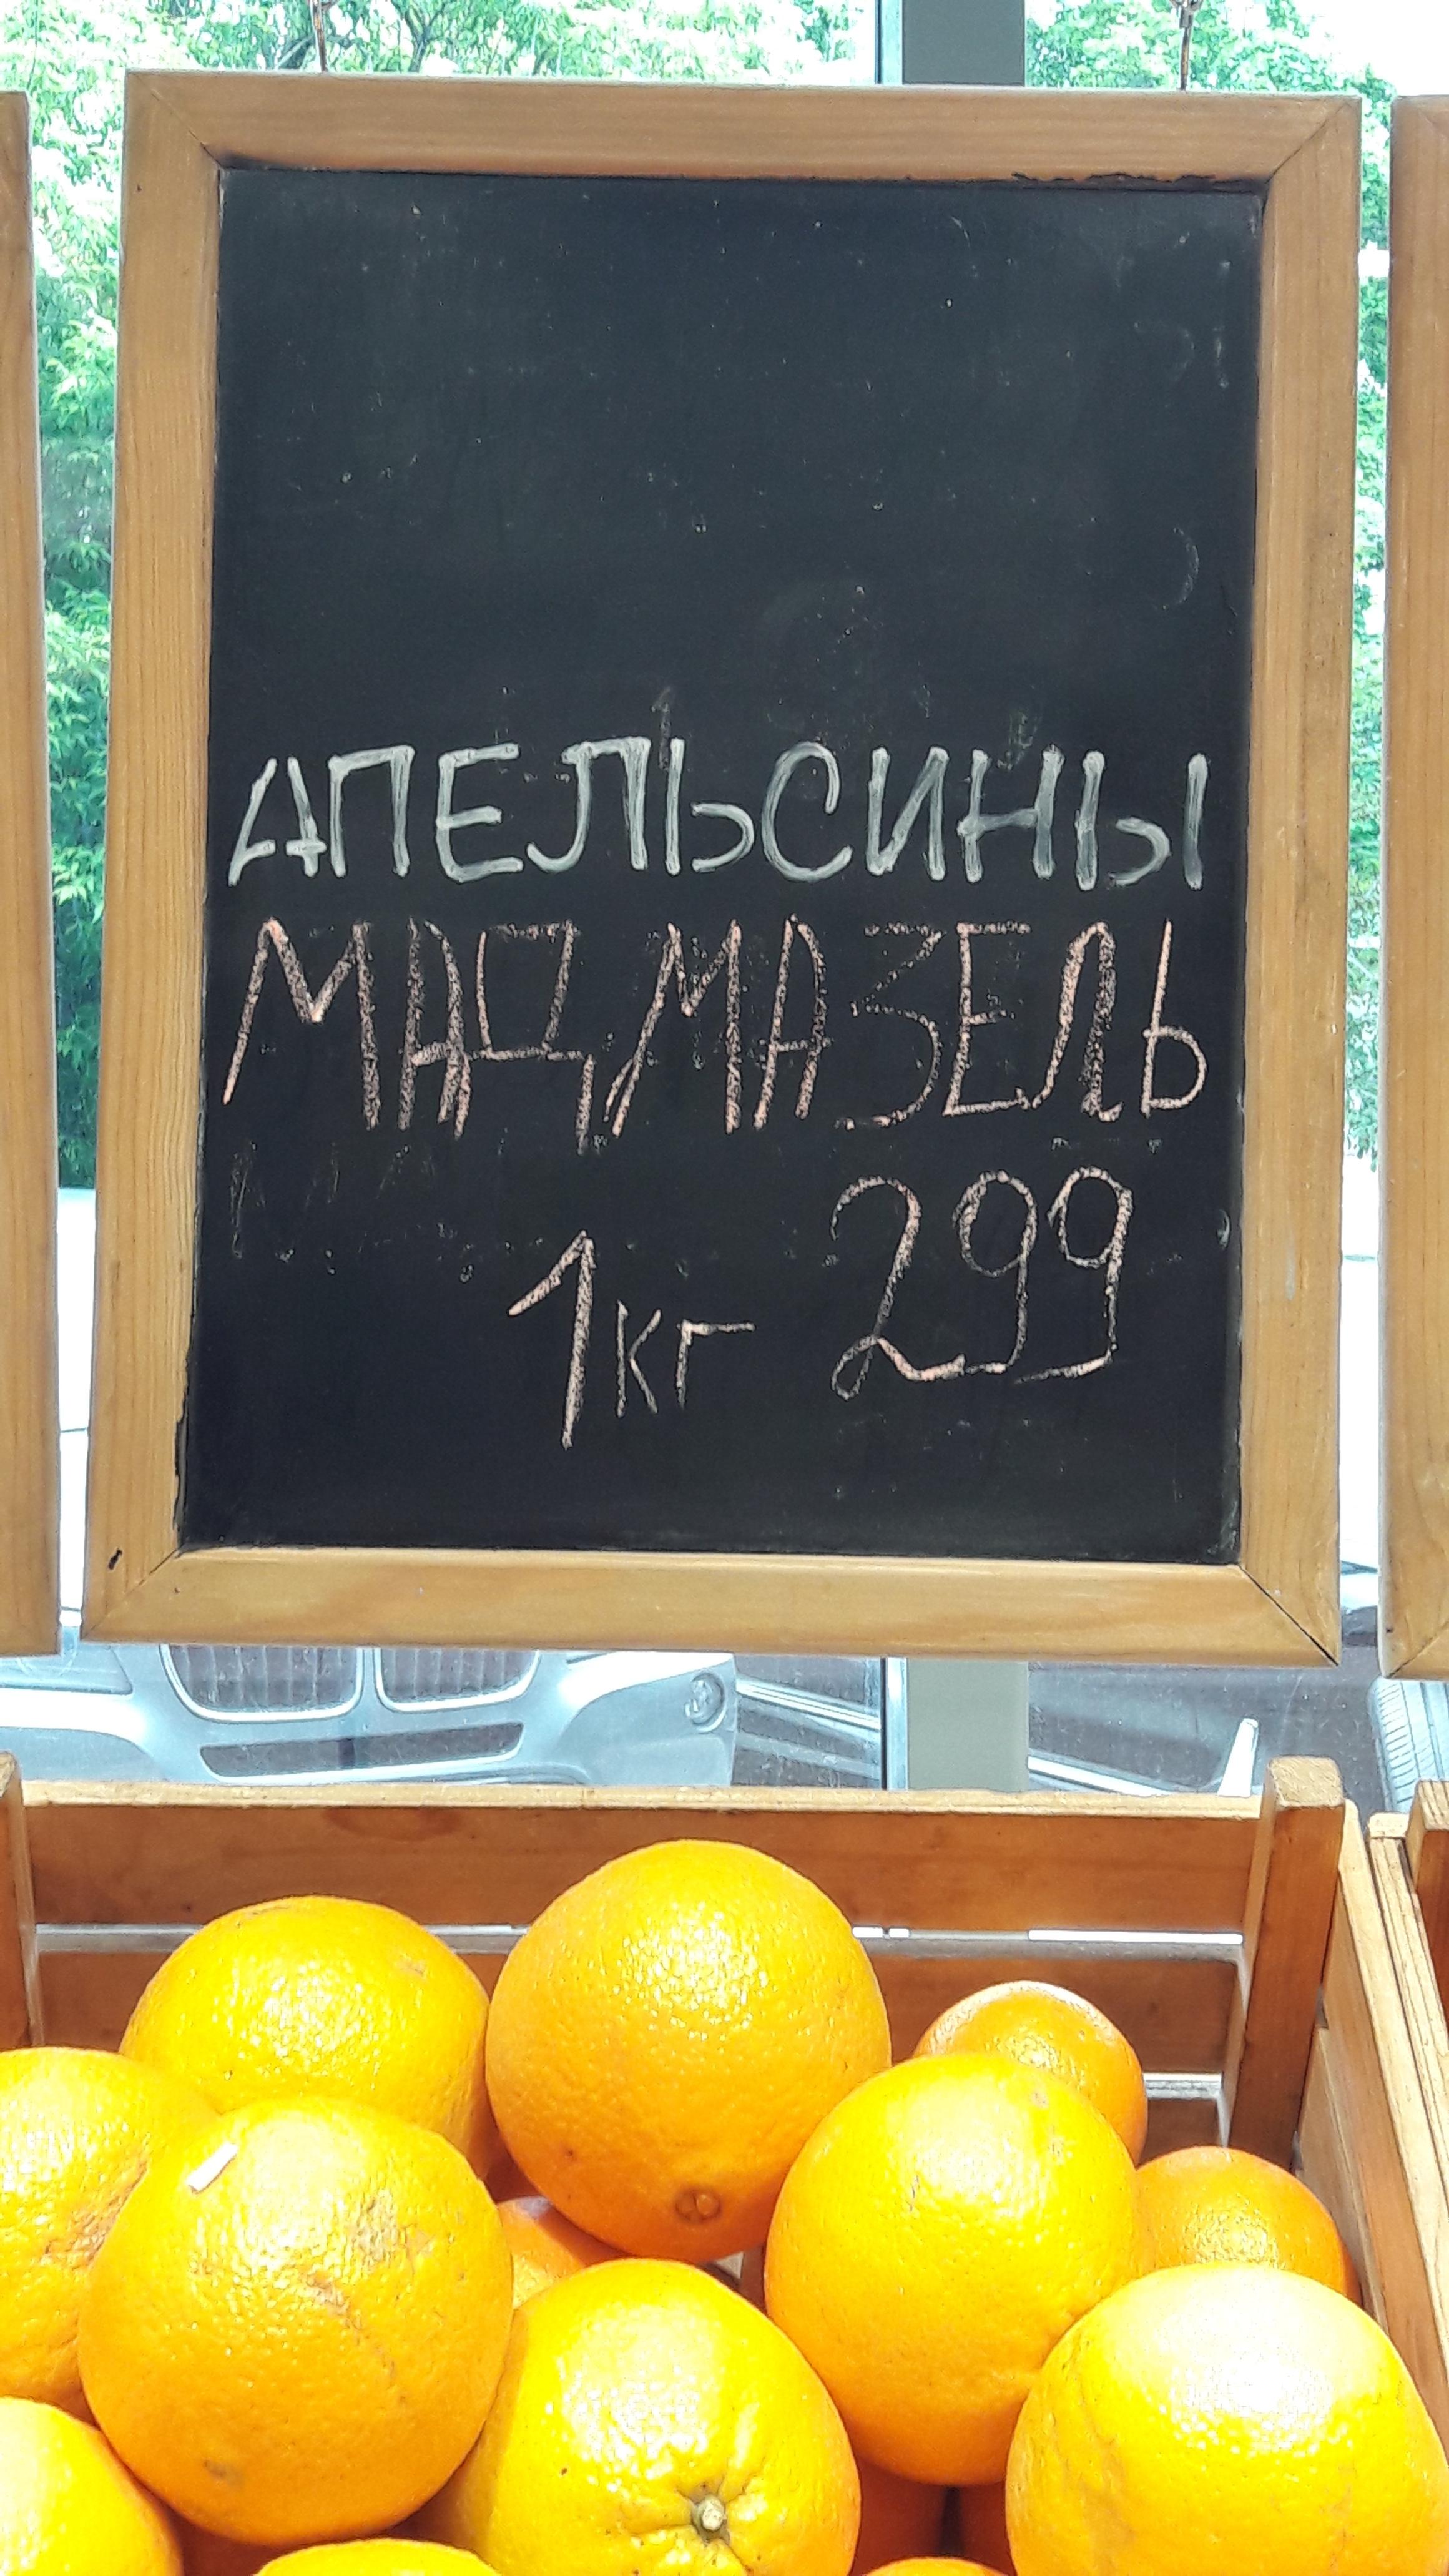 АПЕЛЬСИНЫ
МАДМАЗЕЛЬ
1кг 299